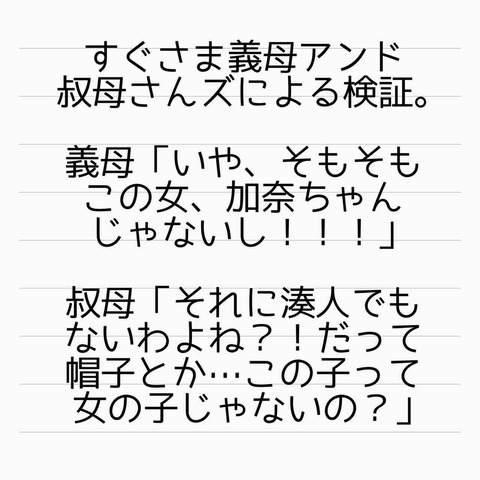 すぐさま義母アンド
叔母さんズによる検証。
義母「いや、そもそも
この女、加奈ちゃん
じゃないし！！！」
叔母「それに湊人でも
ないわよね？！だって
帽子とか…この子って
女の子じゃないの？」